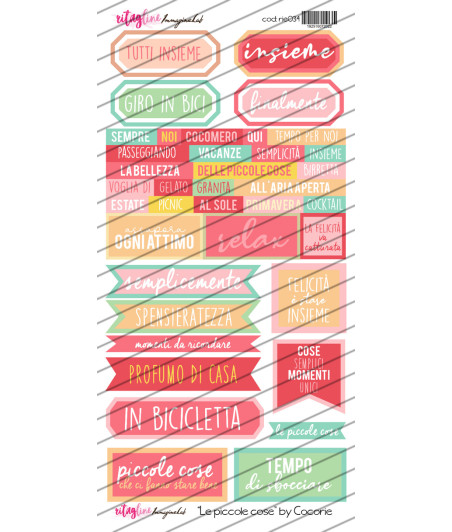 ritagline Immaginelab cod: rie034
TUTTI INSIEME
insieme
GIRO IN BICI
finalmente
SEMPRE NOI COCOMERO QUI TEMPO PER NOI
PASSEGGIANDO VACANZE SEMPLICITÀ INSIEME
LA BELLEZZA DELLE PICCOLE COSE BIRRETTA
VOGLIA DI GELATO GRANITA ALL'ARIA APERTA
ESTATE PICNIC AL SOLE PRIMAVERA COCKTAIL
assapora
OGNI ATTIMO
relax
LA FELICITÀ
va
catturata
semplicemente
SPENSIERATEZZA
momenti da ricordare
PROFUMO DI CASA
FELICITÀ
è stare
INSIEME
COSE
SEMPLICI
MOMENTI
UNICI
IN BICICLETTA
le piccole cose
piccole cose
che ci fanno stare bene
TEMPO
di sbocciare
ritagline Immaginelab "Le piccole cose" by Cocorie